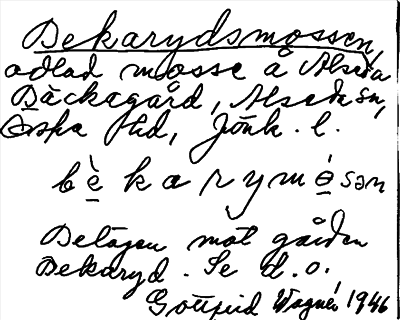 Bekarydsmossen,
odlad mosse å Alseda
Bäckagård, Alseda sn,
Östra Hd, Jönk. l.
bè̱ka rymó̱sən
Belägen mot gården
Bekaryd. Se d.o.
Gottfrid Wagnér 1946